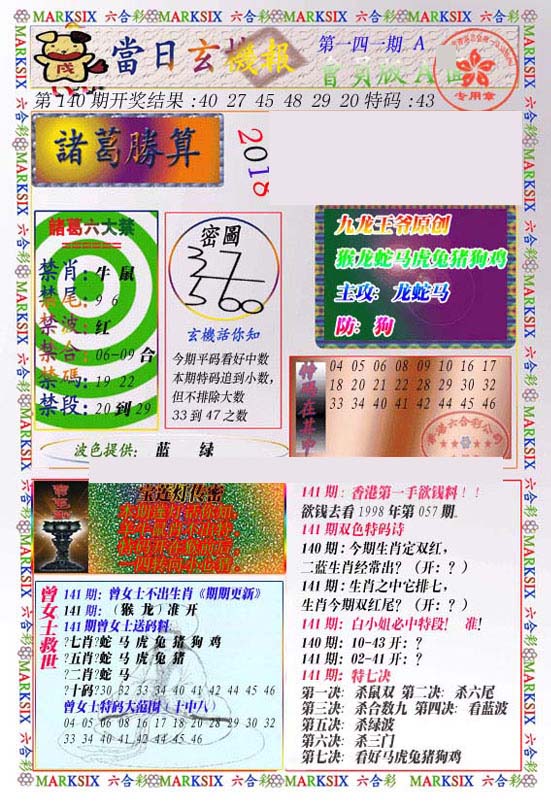 MARKSIX 六合彩 MARKSIX 六合彩 MARKSIX 六合彩 MARKSIX 六合彩 MARKSIX
當日玄機報
第一四一期 A
專用章
第 140 期开奖结果 :40 27 45 48 29 20 特码 :43
諸葛勝算
2018
諸葛六大禁
禁肖: 牛 鼠
禁尾: 9 6
禁波: 红
禁合: 06-09 合
禁碼: 19 22
禁段: 20 到 29
密圖
37
360
玄機話你知
今期平码看好中数
本期特码追到小数,
但不排除大数
33 到 47 之数
九龙王爷原创
猴龙蛇马虎兔猪狗鸡
主攻: 龙蛇马
防: 狗
04 05 06 08 09 10 16 17
18 20 21 22 28 29 30 32
33 34 40 41 42 44 45 46
波色提供: 蓝 绿
宝莲灯传密
曾女士救世
141 期: 曾女士不出生肖《期期更新》
141 期: (猴 龙) 准 开
141 期曾女士送码料:
?七肖?蛇 马 虎 兔 猪 狗 鸡
?五肖?蛇 马 虎 兔 猪
?二肖?蛇 马
?十码?30 32 33 34 40 41 42 44 45 46
曾女士特码大范围 (十中八)
04 05 06 08 16 17 18 20 28 29 30 32
33 34 40 41 42 44 45 46
141 期: 香港第一手欲钱料!!
欲钱去看 1998 年第 057 期.
141 期双色特码诗
140 期: 今期生肖定双红,
二蓝生肖经常出? (开: ?)
141 期: 生肖之中它排七,
生肖今期双红尾? (开: ?)
141 期: 白小姐必中特段! 准!
140 期: 10-43 开: ?
141 期: 02-41 开: ?
141 期: 特七决
第一决: 杀鼠双 第二决: 杀六尾
第三决: 杀合数九 第四决: 看蓝波
第五决: 杀绿波
第六决: 杀三门
第七决: 看好马虎兔猪狗鸡
MARKSIX 六合彩 MARKSIX 六合彩 MARKSIX 六合彩 MARKSIX 六合彩 MARKSIX